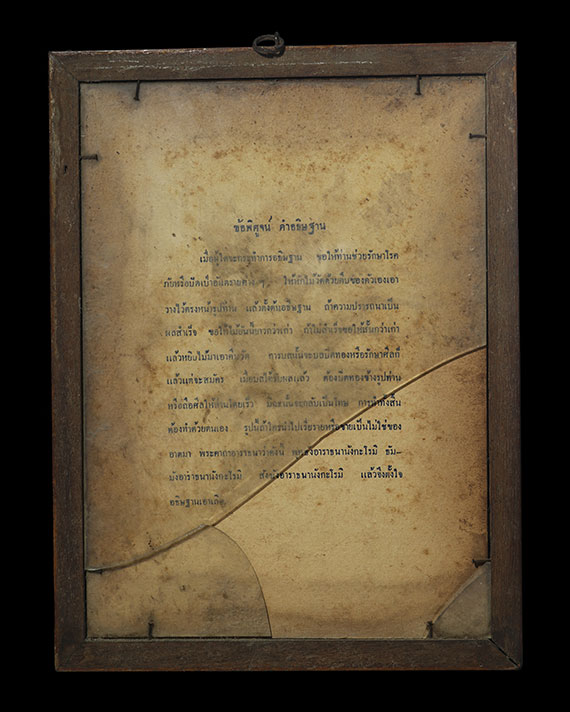 ข้อพิศูจน์ คำอธิษฐาน
เมื่อผู้ใดจะกระทำการอธิษฐาน ขอให้ท่านช่วยรักษาโรค
ภัยหรือปัดเป่าอันตรายต่าง ๆ ให้หักไม้วัดด้วยคืบของตัวเองเอา
วางไว้ตรงหน้ารูปท่าน แล้วตั้งต้นอธิษฐาน ถ้าความปรารถนาเป็น
ผลสำเร็จ ขอให้ไม้อันนี้ยาวกว่าเก่า ถ้าไม่สำเร็จขอให้สั้นกว่าเก่า
แล้วหยิบไม้มาเอาคืบวัด การบนนั้นจะบนปิดทองหรือรักษาศีลก็
แล้วแต่จะสมัคร เมื่อบนได้รับผลแล้ว ต้องปิดทองข้างรูปท่าน
หรือถือศีลให้ท่านโดยเร็ว มิฉะนั้นจะกลับเป็นโทษ การนำทั้งสิ้น
ต้องทำด้วยตนเอง รูปนี้ถ้าใครนำไปเรี่ยรายหรือขายเป็นไม่ใช่ของ
อาตมา พระคาถาอาราธนาว่าดังนี้ พุทธังอาราธนานังกะโรมิ ธัม–
มังอาราธนานังกะโรมิ สังฆังอาราธนานังกะโรมิ แล้วจึงตั้งใจ
อธิษฐานเอาเถิด